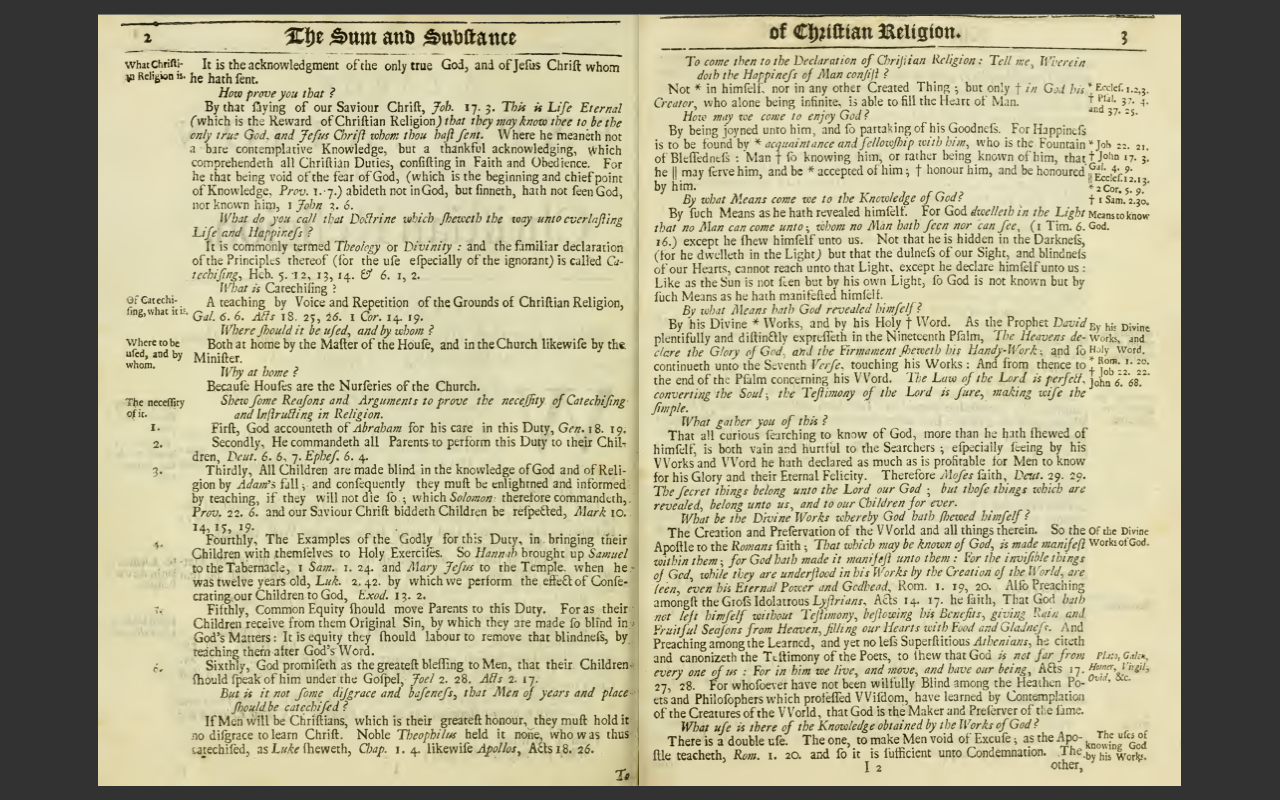 2 The Sum and Substance
What Christi-
an Religion is.
It is the acknowledgment of the only true God, and of Jesus Christ whom
he hath sent.
How prove you that ?
By that saying of our Saviour Christ, Joh. 17. 3. This is Life Eternal
(which is the Reward of Christian Religion) that they may know thee to be the
only true God, and Jesus Christ whom thou hast sent. Where he meaneth not
a bare contemplative Knowledge, but a thankful acknowledging, which
comprehendeth all Christian Duties, consisting in Faith and Obedience. For
he that being void of the fear of God, (which is the beginning and chief point
of Knowledge, Prov. 1. 7.) abideth not in God, but sinneth, hath not seen God,
nor known him, 1 John 3. 6.
What do you call that Doctrine which sheweth the way unto everlasting
Life and Happiness ?
It is commonly termed Theology or Divinity : and the familiar declaration
of the Principles thereof (for the use especially of the ignorant) is called Ca-
techising, Heb. 5. 12, 13, 14. & 6. 1, 2.
What is Catechising ?
Of Catechi-
sing, what it is.
A teaching by Voice and Repetition of the Grounds of Christian Religion,
Gal. 6. 6. Acts 18. 25, 26. 1 Cor. 14. 19.
Where should it be used, and by whom ?
Where to be
used, and by
whom.
Both at home by the Master of the House, and in the Church likewise by the
Minister.
Why at home ?
Because Houses are the Nurseries of the Church.
The necessity
of it.
Shew some Reasons and Arguments to prove the necessity of Catechising
and Instructing in Religion.
1. First, God accounteth of Abraham for his care in this Duty, Gen. 18. 19.
2. Secondly, He commandeth all Parents to perform this Duty to their Chil-
dren, Deut. 6. 6, 7. Ephes. 6. 4.
3. Thirdly, All Children are made blind in the knowledge of God and of Reli-
gion by Adam's fall ; and consequently they must be enlightned and informed
by teaching, if they will not die so ; which Solomon therefore commandeth,
Prov. 22. 6. and our Saviour Christ biddeth Children be respected, Mark 10.
14, 15, 19.
4. Fourthly, The Examples of the Godly for this Duty, in bringing their
Children with themselves to Holy Exercises. So Hannah brought up Samuel
to the Tabernacle, 1 Sam. 1. 24. and Mary Jesus to the Temple when he
was twelve years old, Luk. 2. 42. by which we perform the effect of Conse-
crating our Children to God, Exod. 13. 2.
5. Fifthly, Common Equity should move Parents to this Duty. For as their
Children receive from them Original Sin, by which they are made so blind in
God's Matters : It is equity they should labour to remove that blindness, by
teaching them after God's Word.
6. Sixthly, God promiseth as the greatest blessing to Men, that their Children
should speak of him under the Gospel, Joel 2. 28. Acts 2. 17.
But is it not some disgrace and baseness, that Men of years and place
should be catechised ?
If Men will be Christians, which is their greatest honour, they must hold it
no disgrace to learn Christ. Noble Theophilus held it none, who was thus
catechised, as Luke sheweth, Chap. 1. 4. likewise Apollos, Acts 18. 26.
To
of Christian Religion. 3
To come then to the Declaration of Christian Religion : Tell me, Wherein
doth the Happiness of Man consist ?
Not * in himself, nor in any other Created Thing ; but only † in God his
Creator, who alone being infinite, is able to fill the Heart of Man.
* Eccles. 1.2,3.
† Psal. 37. 4.
and 37. 25.
How may we come to enjoy God ?
By being joyned unto him, and so partaking of his Goodness. For Happiness
is to be found by * acquaintance and fellowship with him, who is the Fountain
of Blessedness : Man † so knowing him, or rather being known of him, that
he || may serve him, and be * accepted of him ; † honour him, and be honoured
by him.
* Job 22. 21.
† John 17. 3.
Gal. 4. 9.
|| Eccles. 12. 13.
* 2 Cor. 5. 9.
† 1 Sam. 2.30.
By what Means come we to the Knowledge of God?
Means to know
God.
By such Means as he hath revealed himself. For God dwelleth in the Light
that no Man can come unto ; whom no Man hath seen nor can see, (1 Tim. 6.
16.) except he shew himself unto us. Not that he is hidden in the Darkness,
(for he dwelleth in the Light) but that the dulness of our Sight, and blindness
of our Hearts, cannot reach unto that Light, except he declare himself unto us :
Like as the Sun is not seen but by his own Light, so God is not known but by
such Means as he hath manifested himself.
By what Means hath God revealed himself ?
By his Divine * Works, and by his Holy † Word. As the Prophet David
plentifully and distinctly expresseth in the Nineteenth Psalm, The Heavens de-
clare the Glory of God, and the Firmament sheweth his Handy-Work ; and so
continueth unto the Seventh Verse, touching his Works : And from thence to
the end of the Psalm concerning his VVord. The Law of the Lord is perfect,
converting the Soul ; the Testimony of the Lord is sure, making wise the
simple.
By his Divine
Works, and
Holy Word.
* Rom. 1. 20.
† Job 22. 22.
John 6. 68.
What gather you of this ?
That all curious searching to know of God, more than he hath shewed of
himself, is both vain and hurtful to the Searchers ; especially seeing by his
VVorks and VVord he hath declared as much as is profitable for Men to know
for his Glory and their Eternal Felicity. Therefore Moses saith, Deut. 29. 29.
The secret things belong unto the Lord our God ; but those things which are
revealed, belong unto us, and to our Children for ever.
What be the Divine Works whereby God hath shewed himself ?
Of the Divine
Works of God.
The Creation and Preservation of the VVorld and all things therein. So the
Apostle to the Romans saith ; That which may be known of God, is made manifest
within them ; for God hath made it manifest unto them : For the invisible things
of God, while they are understood in his Works by the Creation of the World, are
seen, even his Eternal Power and Godhead, Rom. 1. 19, 20. Also Preaching
amongst the Gross Idolatrous Lystrians, Acts 14. 17. he saith, That God hath
not left himself without Testimony, bestowing his Benefits, giving Rain and
Fruitful Seasons from Heaven, filling our Hearts with Food and Gladness. And
Preaching among the Learned, and yet no less Superstitious Athenians, he citeth
and canonizeth the Testimony of the Poets, to shew that God is not far from
every one of us : For in him we live, and move, and have our being, Acts 17.
27, 28. For whosoever have not been wilfully Blind among the Heathen Po-
ets and Philosophers which professed VVisdom, have learned by Contemplation
of the Creatures of the VVorld, that God is the Maker and Preserver of the same.
Plato, Galen,
Homer, Virgil,
Ovid, &c.
What use is there of the Knowledge obtained by the Works of God ?
There is a double use. The one, to make Men void of Excuse ; as the Apo-
stle teacheth, Rom. 1. 20. and so it is sufficient unto Condemnation. The
The uses of
knowing God
by his Works.
I 2 other,